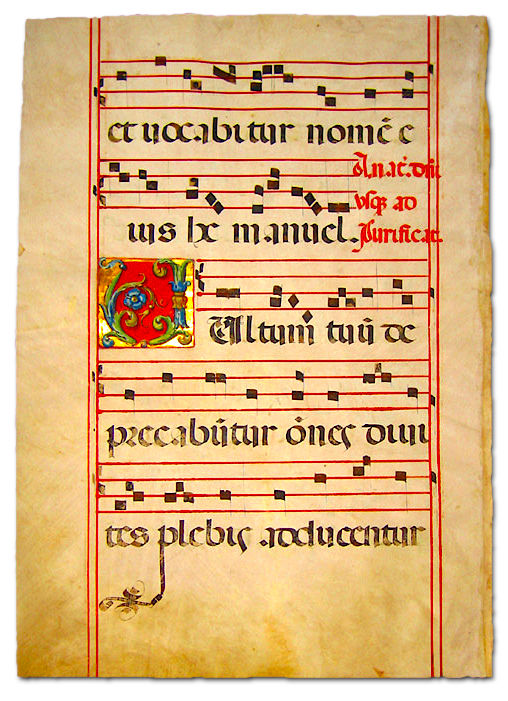 et uocabitur nomē e
A nat̄. dn̄i
usq; ad
ius he manuel.
Purificat.
VUltum tuū de
precabūtur ōnes diui
tes plebis adducentur